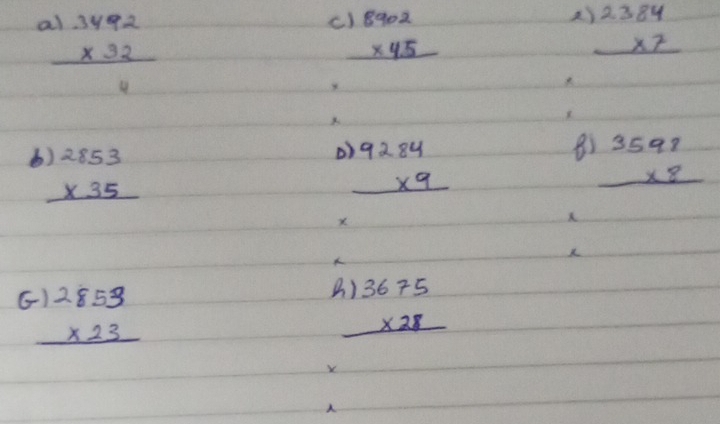 a) 3492
x 32
4
c) 8902
x 45
x
x
e) 2384
x 7
x
x
b) 2853
x 35
D) 9284
x 9
x
x
f) 3598
x 8
x
x
G) 2853
x 23
h) 3675
x 28
x
x